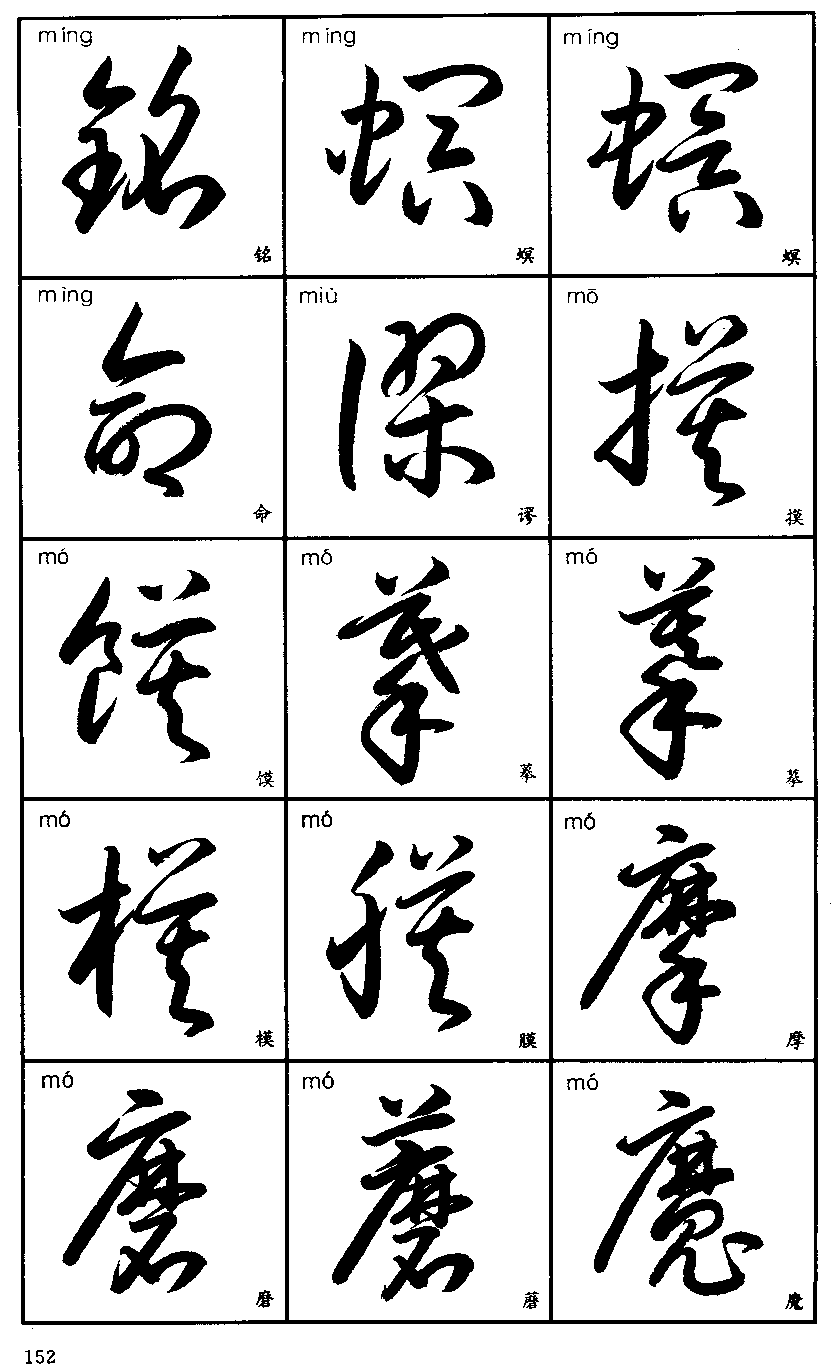 míng míng míng
銘 螟 螟
铭 螟 螟
mìng miù mō
命 謬 摸
命 谬 摸
mó mó mó
饃 摹 摹
馍 摹 摹
mó mó mó
模 膜 摩
模 膜 摩
mó mó mó
磨 蘑 魔
磨 蘑 魔
152